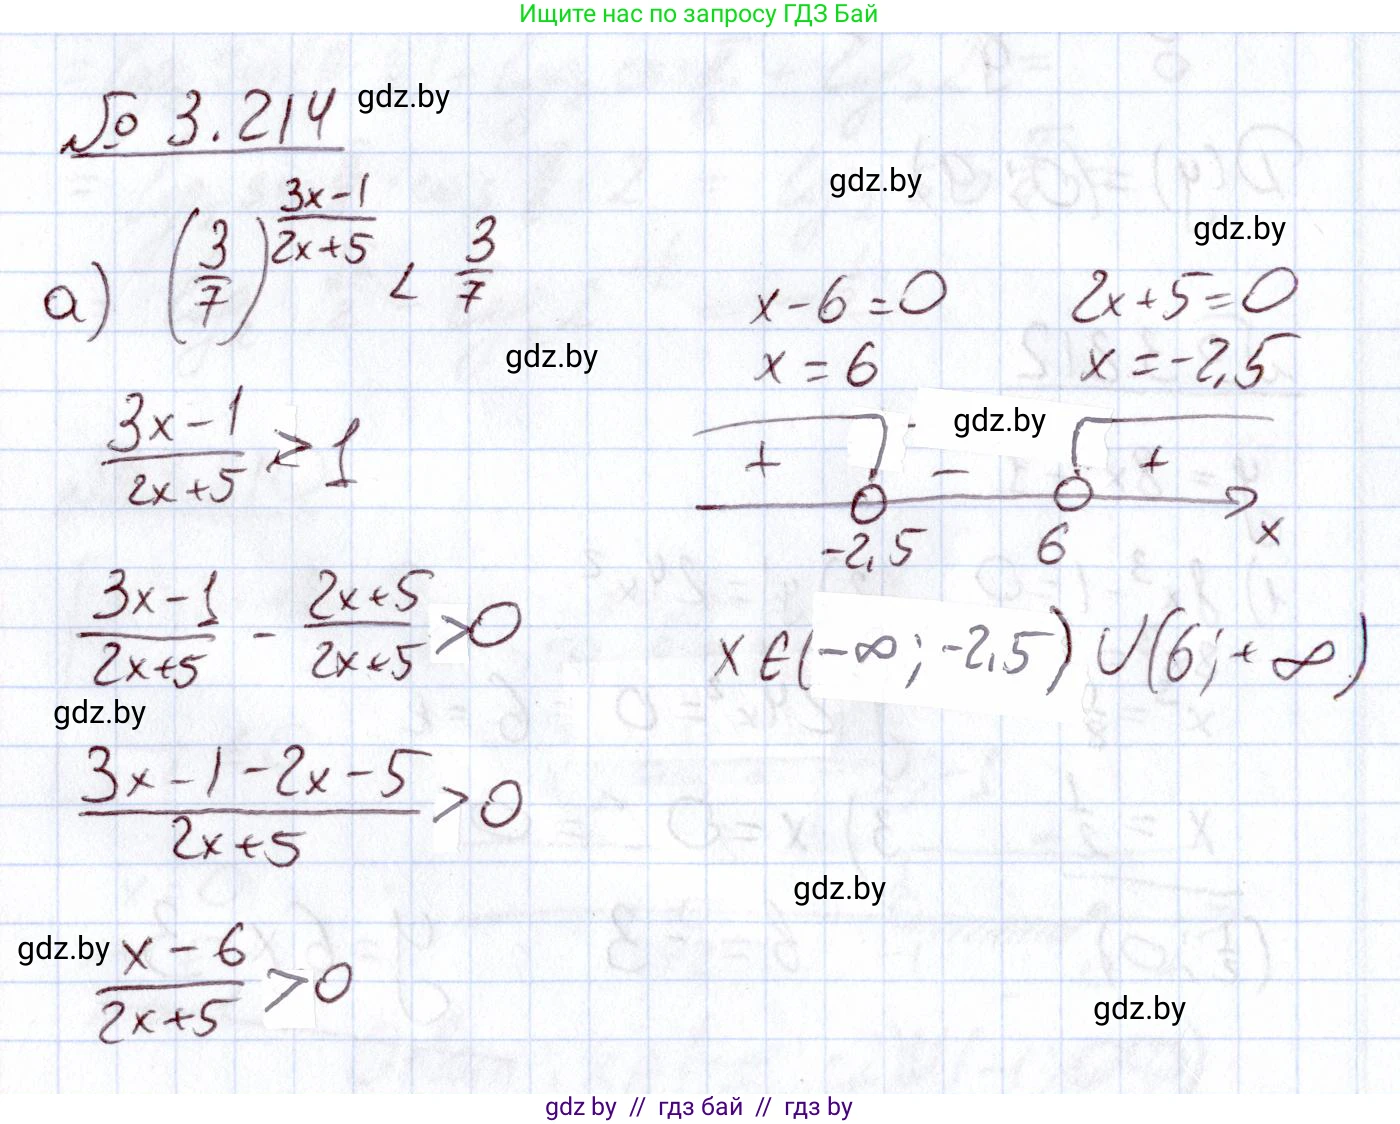 Ищите нас по запросу ГДЗ Бай
№ 3.214
gdz.by
а) (3/7)^((3x-1)/(2x+5)) < 3/7
gdz.by
(3x-1)/(2x+5) > 1
(3x-1)/(2x+5) - (2x+5)/(2x+5) > 0
gdz.by
(3x-1-2x-5)/(2x+5) > 0
gdz.by
(x-6)/(2x+5) > 0
gdz.by
gdz.by
x-6=0 2x+5=0
x=6 x=-2,5
gdz.by
+ - +
-2,5 6 x
x∈(-∞;-2,5)∪(6;+∞)
gdz.by
gdz.by
gdz by // гдз бай // гдз by